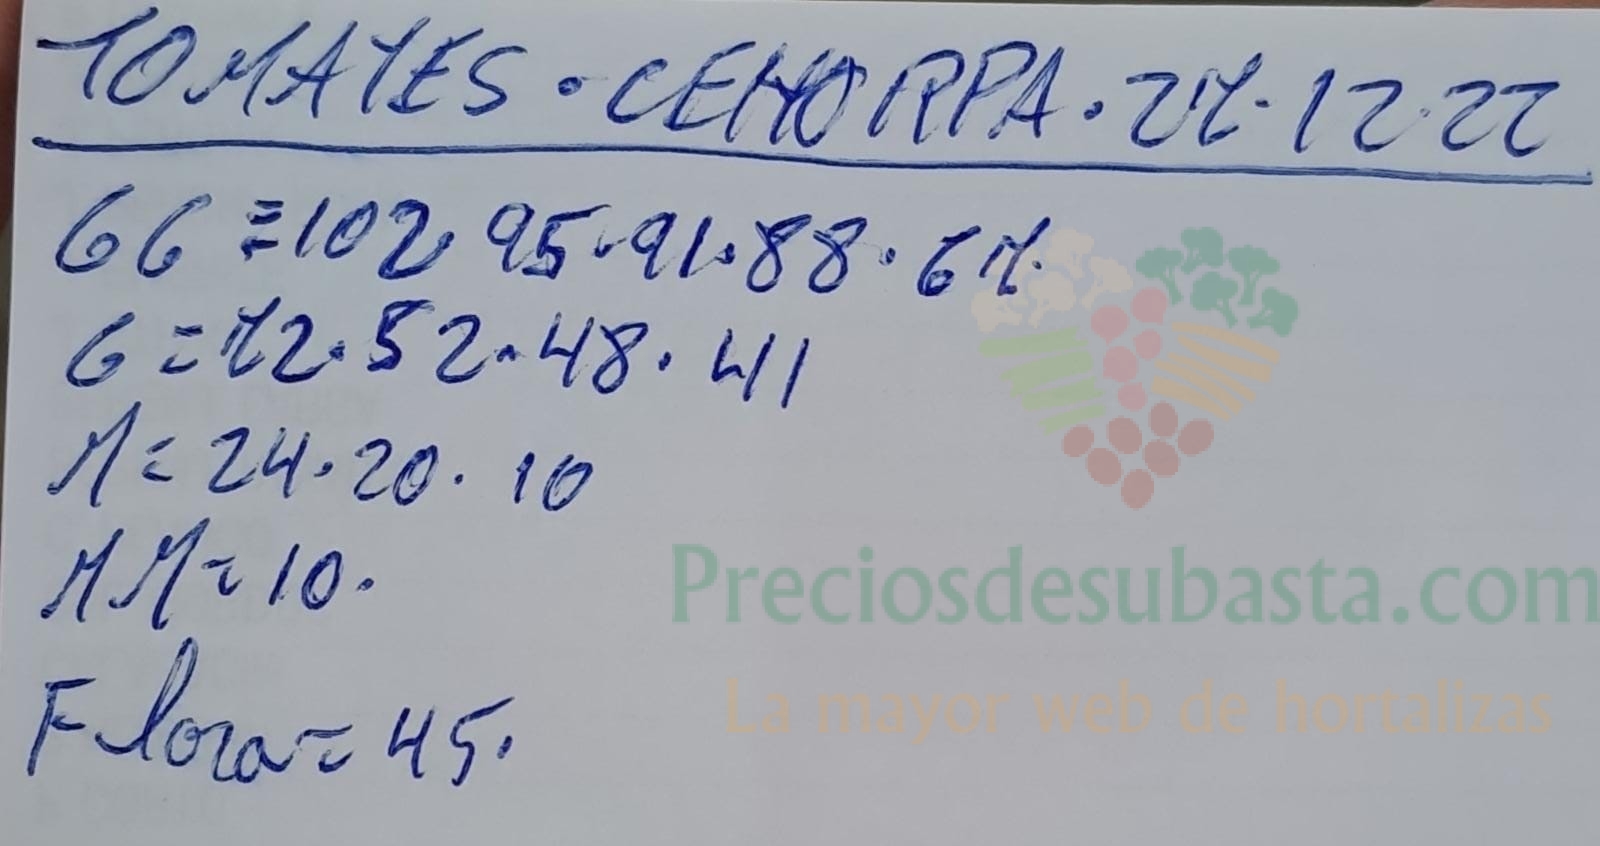 TOMATES · CEHORPA · 27·12·22
GG = 102 · 95 · 91 · 88 · 67 ·
G = 72 · 52 · 48 · 41
M = 24 · 20 · 10
MM = 10 ·
F. lora = 45 ·
Preciosdesubasta.com
La mayor web de hortalizas